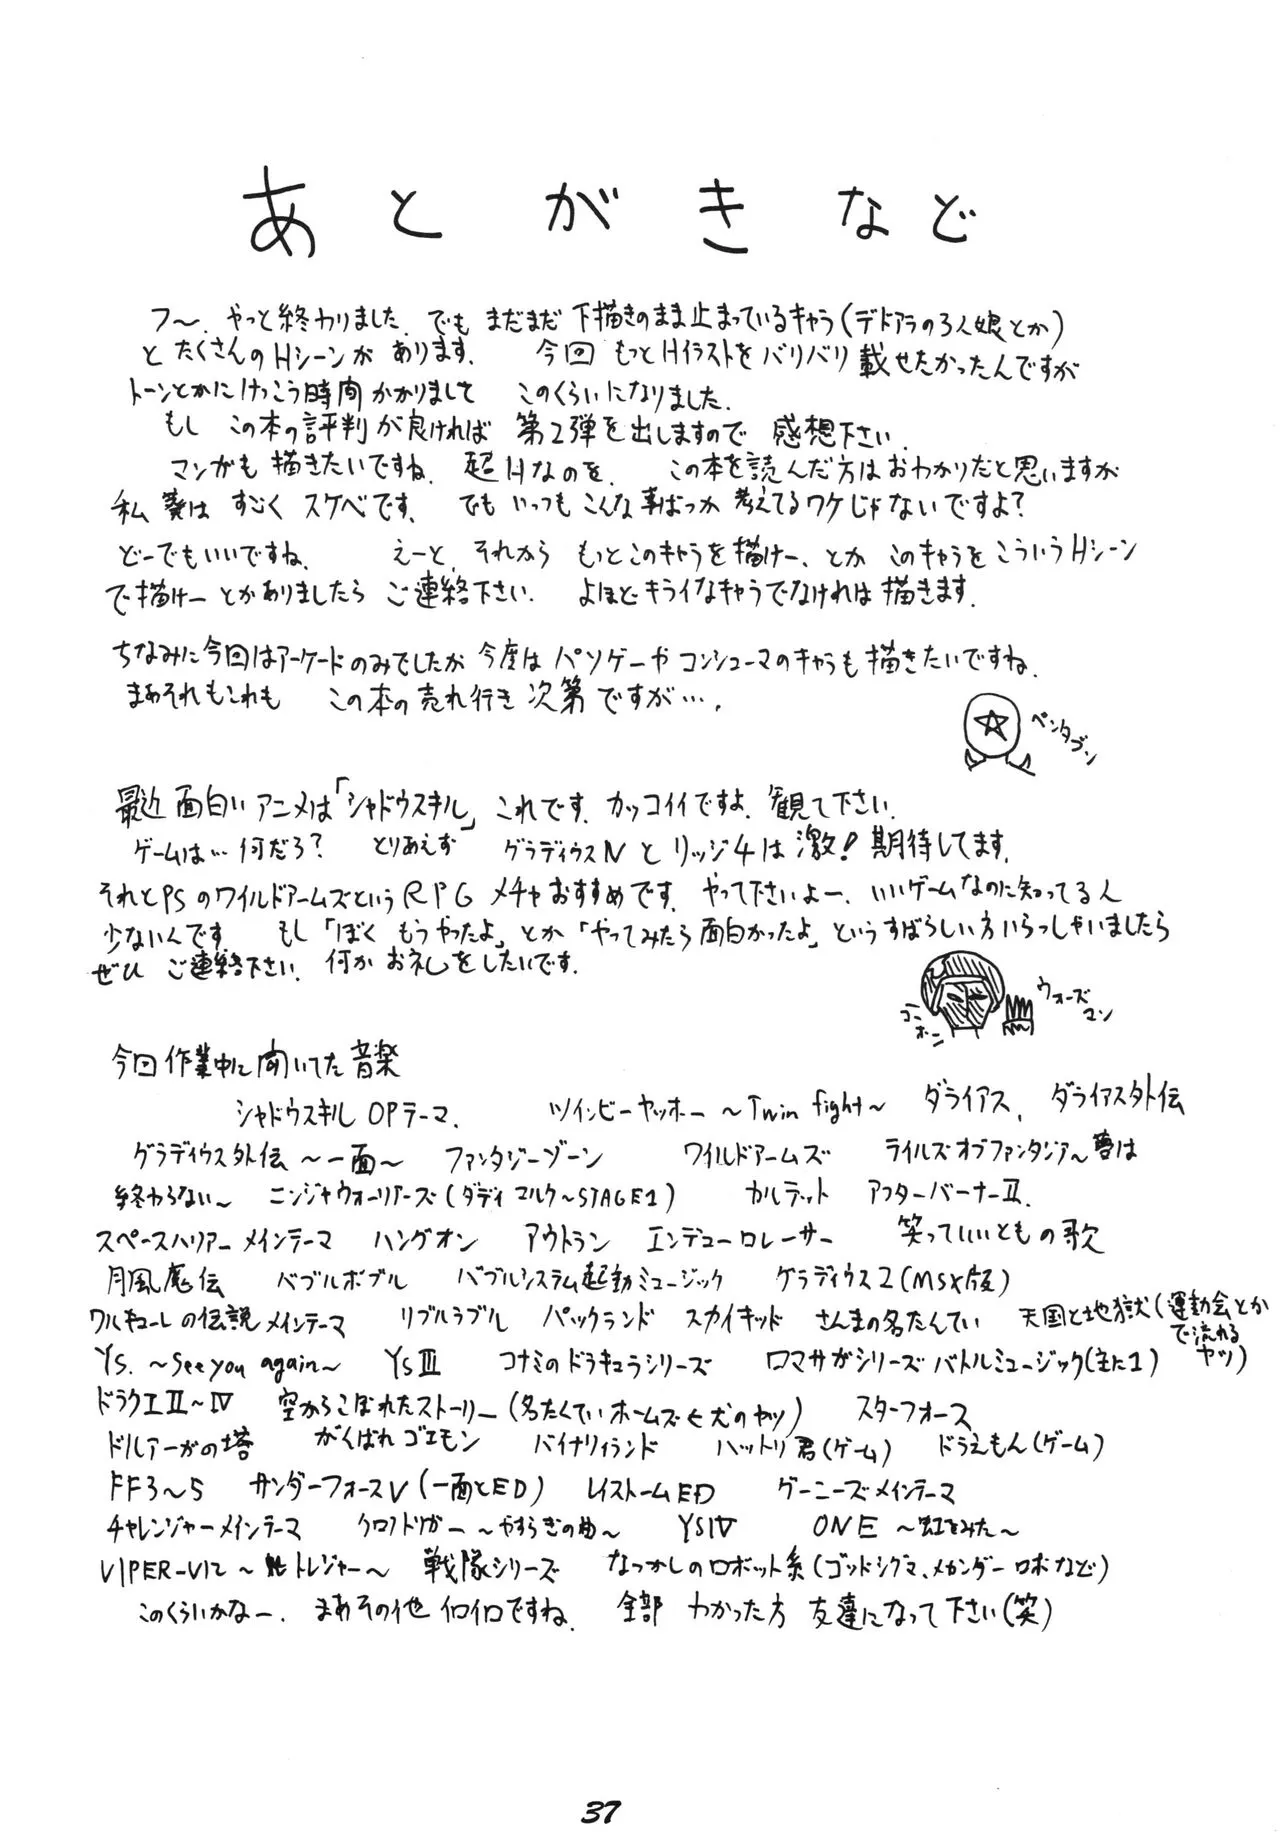 あとがきなど
フ〜、やっと終わりました、でもまだまだ下描きのまま止まっているキャラ(デドアラの3人娘とか)
とたくさんのHシーンがあります。 今回もっとHイラストをバリバリ載せたかったんですが
トーンとかにけっこう時間かかりまして このくらいになりました。
もし この本の評判が良ければ 第2弾を出しますので 感想下さい。
マンガも描きたいですね、超Hなのを、 この本を読んだ方はおわかりだと思いますが
私 葵は すごく スケベです。 でも いっつも こんな事ばっか考えてるワケじゃないですよ?
どーでもいいですね、 えーと、それから もっとこのキャラを描けー、とか このキャラをこういうHシーン
で描けー とかありましたら ご連絡下さい、 よほどキライなキャラでなければ描きます。
ちなみに今回はアーケードのみでしたが今度は パソゲーや コンシューマのキャラも描きたいですね、
まあそれもこれも この本の売れ行き次第ですが…。
ペンタゴン
最近面白いアニメは「シャドウスキル」これです、カッコイイですよ、観て下さい。
ゲームは…何だろ? とりあえず グラディウスⅣとリッジ4は激!期待してます。
それとPSのワイルドアームズというRPG メチャおすすめです、やって下さいよー、いいゲームなのに知ってる人
少ないんです もし「ぼく もうやったよ」とか「やってみたら面白かったよ」というすばらしい方いらっしゃいましたら
ぜひ ご連絡下さい、何かお礼をしたいです。
コーホー
ウォーズマン
今回作業中に聞いてた音楽
シャドウスキルOPテーマ、 ツインビーヤッホー〜Twin fight〜 ダライアス、 ダライアス外伝
グラディウス外伝〜一面〜 ファンタジーゾーン ワイルドアームズ テイルズオブファンタジア〜夢は
終わらない〜 ニンジャウォーリアーズ(ダディマルク〜STAGE1) カルテット アフターバーナーⅡ、
スペースハリアーメインテーマ ハングオン アウトラン エンデューロレーサー 笑っていいともの歌
月風魔伝 バブルボブル バブルシステム起動ミュージック グラディウス2(MSX版)
ワルキューレの伝説メインテーマ リブルラブル パックランド スカイキッド さんまの名たんてい 天国と地獄(運動会とか
で流れる
ヤツ)
YS. 〜See you again〜 YsⅢ コナミのドラキュラシリーズ ロマサガシリーズバトルミュージック(主に1)
ドラクエⅡ〜Ⅳ 空からこぼれたストーリー(名たんていホームズ←犬のヤツ) スターフォース
ドルアーガの塔 がんばれゴエモン バイナリィランド ハットリ君(ゲーム) ドラえもん(ゲーム)
FF3〜5 サンダーフォースV(一面とED) レイストームED グーニーズメインテーマ
チャレンジャーメインテーマ クロノトリガー〜やすらぎの曲〜 YSⅣ ONE〜虹をみた〜
VIPER-V12〜トレジャー〜 戦隊シリーズ なつかしのロボット系(ゴッドシグマ、メカンダーロボなど)
このくらいかなー、 まあその他 イロイロですね、 全部 わかった方 友達になって下さい(笑)
37